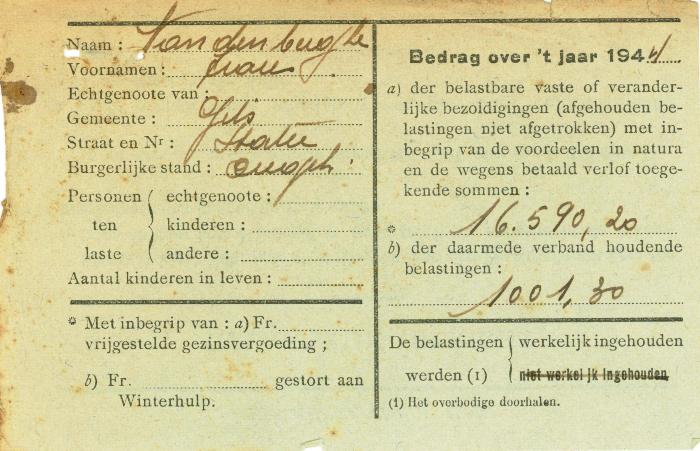 Naam : Vandenberghe
Voornamen :
Echtgenoote van :
Gemeente : Gits
Straat en Nr : Statie
Burgerlijke stand : ongeh.
Personen ten laste
echtgenoote :
kinderen :
andere :
Aantal kinderen in leven :
* Met inbegrip van : a) Fr.
vrijgestelde gezinsvergoeding ;
b) Fr. gestort aan
Winterhulp.
Bedrag over 't jaar 1944
a) der belastbare vaste of verander-
lijke bezoldigingen (afgehouden be-
lastingen niet afgetrokken) met in-
begrip van de voordeelen in natura
en de wegens betaald verlof toege-
kende sommen :
* 16.590,20
b) der daarmede verband houdende
belastingen :
1001,30
De belastingen werden (1)
werkelijk ingehouden
niet werkelijk ingehouden
(1) Het overbodige doorhalen.